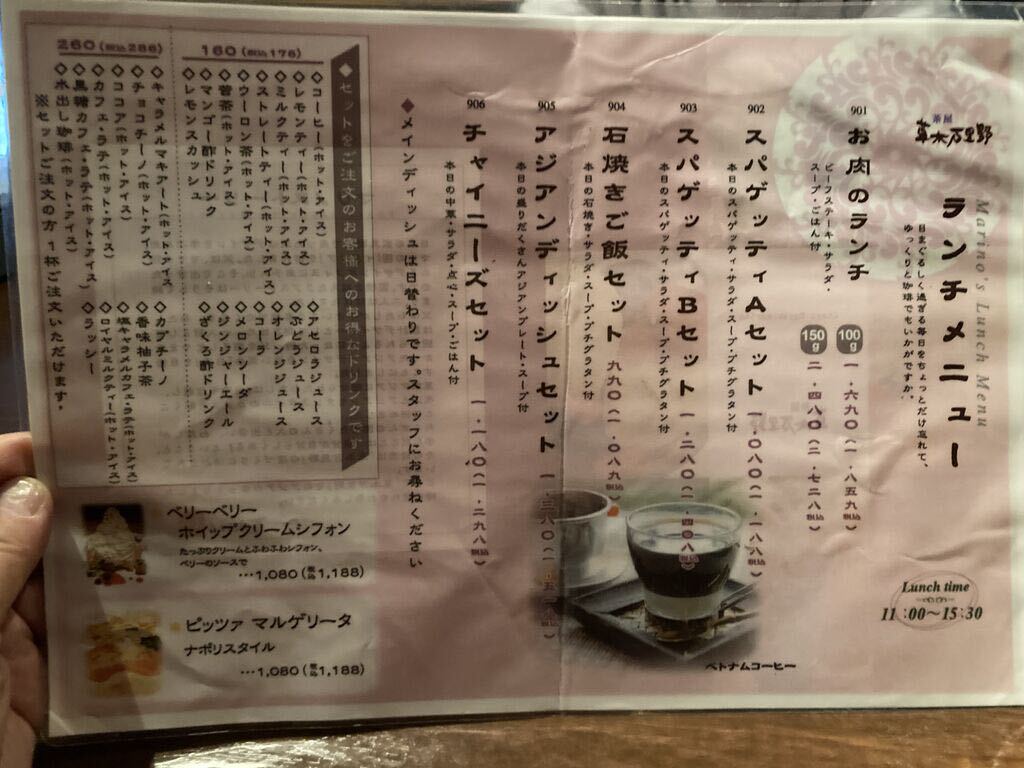 茶屋
草木万里野
Marino's Lunch Menu
ランチメニュー
目まぐるしく過ぎる毎日をちょっとだけ忘れて、
ゆっくりと珈琲でもいかがですか。
901
お肉のランチ
ビーフステーキ・サラダ・
スープ・ごはん付
100g 一、六九〇(一、八五九税込)
150g 二、四八〇(二、七二八税込)
902
スパゲッティAセット 一、〇八〇(一、一八八税込)
本日のスパゲッティ・サラダ・スープ・プチグラタン付
903
スパゲッティBセット 一、二八〇(一、四〇八税込)
本日のスパゲッティ・サラダ・スープ・プチグラタン付
904
石焼きご飯セット 九九〇(一、〇八九税込)
本日の石焼き・サラダ・スープ・プチグラタン付
905
アジアンディッシュセット
本日の盛りだくさんアジアンプレート・スープ付
906
チャイニーズセット 一、一八〇(一、二九八税込)
本日の中華・サラダ・点心・スープ・ごはん付
◆メインディッシュは日替わりです。スタッフにお尋ねください
Lunch time
11:00〜15:30
ベトナムコーヒー
◆セットをご注文のお客様へのお得なドリンクです
160(税込176)
◇コーヒー(ホット・アイス)
◇レモンティー(ホット・アイス)
◇ミルクティー(ホット・アイス)
◇ストレートティー(ホット・アイス)
◇ウーロン茶(ホット・アイス)
◇薔茶(ホット・アイス)
◇マンゴー酢ドリンク
◇レモンスカッシュ
◇アセロラジュース
◇ぶどうジュース
◇オレンジジュース
◇コーラ
◇メロンソーダ
◇ジンジャーエール
◇ざくろ酢ドリンク
260(税込286)
◇キャラメルマキアート(ホット・アイス)
◇チョコチーノ(ホット・アイス)
◇ココア(ホット・アイス)
◇カフェ・ラテ(ホット・アイス)
◇黒糖カフェ・ラテ(ホット・アイス)
◇水出し珈琲(ホット・アイス)
◇カプチーノ
◇香味柚子茶
◇塩キャラメルカフェ・ラテ(ホット・アイス)
◇ロイヤルミルクティー(ホット・アイス)
◇ラッシー
※セットご注文の方1杯ご注文いただけます。
ベリーベリー
ホイップクリームシフォン
たっぷりクリームとふわふわシフォン、
ベリーのソースで
…1,080(税込1,188)
ピッツァ マルゲリータ
ナポリスタイル
…1,080(税込1,188)